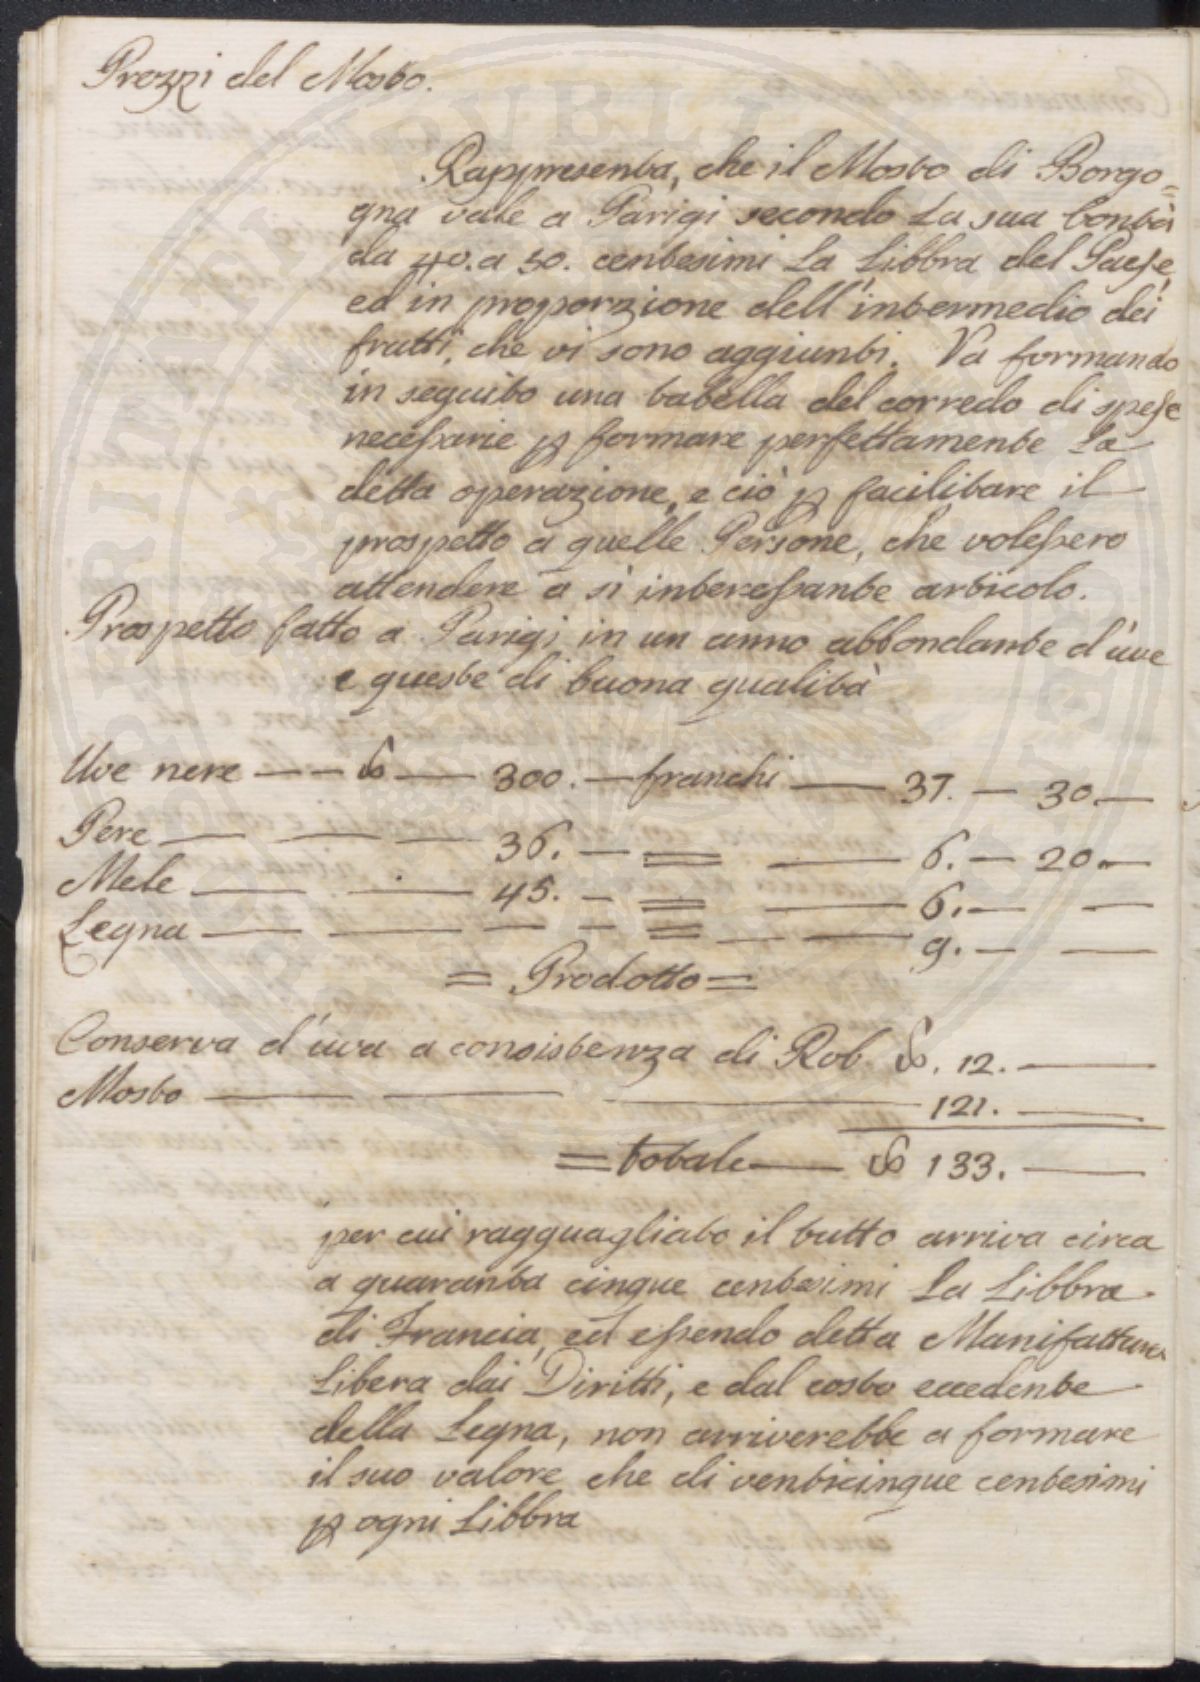 Prezzi del Mosto.
Rappresenta, che il Mosto di Borgo=
gna vale a Parigi secondo La sua bontà
da 40. a 50. centesimi La Libbra del Paese,
ed in proporzione dell'intermedio dei
frutti, che vi sono aggiunti. Va formando
in seguito una tabella del corredo di spese
necessarie ꝑ formare perfettamente La
detta operazione, e ciò ꝑ facilitare il
prospetto a quelle Persone, che volessero
attendere a sì interessante articolo.
Prospetto fatto a Parigi in un anno abbondante d'uve
e queste di buona qualità
Uve nere — — ℔ — 300. — franchi — 37. — 30. —
Pere — — — 36. — = — 6. — 20. —
Mele — — — 45. — = — 6. — —
Legna — — — — = — — 9. — —
= Prodotto =
Conserva d'uva a consistenza di Rob ℔. 12. —
Mosto — — — 121. —
= totale — ℔ 133. —
per cui ragguagliato il tutto arriva circa
a quaranta cinque centesimi La Libbra
di Francia, ed essendo detta Manifattura
Libera dai Diritti, e dal costo eccedente
della Legna, non arriverebbe a formare
il suo valore che di venticinque centesimi
ꝑ ogni Libbra